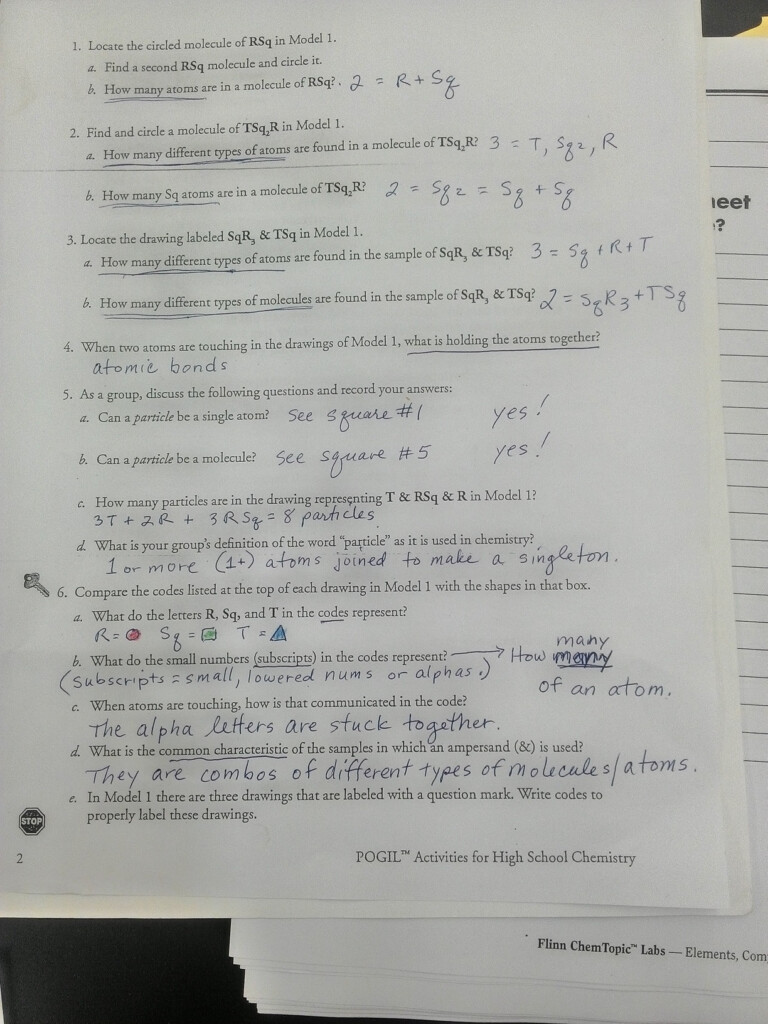 1. Locate the circled molecule of RSq in Model 1.
a. Find a second RSq molecule and circle it.
b. How many atoms are in a molecule of RSq? . 2 = R + Sq
2. Find and circle a molecule of TSq₂R in Model 1.
a. How many different types of atoms are found in a molecule of TSq₂R? 3 = T, Sq₂, R
b. How many Sq atoms are in a molecule of TSq₂R? 2 = Sq₂ = Sq + Sq
3. Locate the drawing labeled SqR₃ & TSq in Model 1.
a. How many different types of atoms are found in the sample of SqR₃ & TSq? 3 = Sq + R + T
b. How many different types of molecules are found in the sample of SqR₃ & TSq? 2 = SqR₃ + TSq
4. When two atoms are touching in the drawings of Model 1, what is holding the atoms together?
atomic bonds
5. As a group, discuss the following questions and record your answers:
a. Can a particle be a single atom? See square #1 yes!
b. Can a particle be a molecule? See square #5 yes!
c. How many particles are in the drawing representing T & RSq & R in Model 1?
3T + 2R + 3RSq = 8 particles
d. What is your group's definition of the word "particle" as it is used in chemistry?
1 or more (1+) atoms joined to make a singleton.
6. Compare the codes listed at the top of each drawing in Model 1 with the shapes in that box.
a. What do the letters R, Sq, and T in the codes represent?
R = Sq = T =
b. What do the small numbers (subscripts) in the codes represent? How many
(Subscripts = small, lowered nums or alphas.) of an atom.
c. When atoms are touching, how is that communicated in the code?
The alpha letters are stuck together.
d. What is the common characteristic of the samples in which an ampersand (&) is used?
They are combos of different types of molecules/atoms.
e. In Model 1 there are three drawings that are labeled with a question mark. Write codes to
properly label these drawings.
STOP
2
POGIL™ Activities for High School Chemistry
eet
?
Flinn ChemTopic™ Labs — Elements, Com